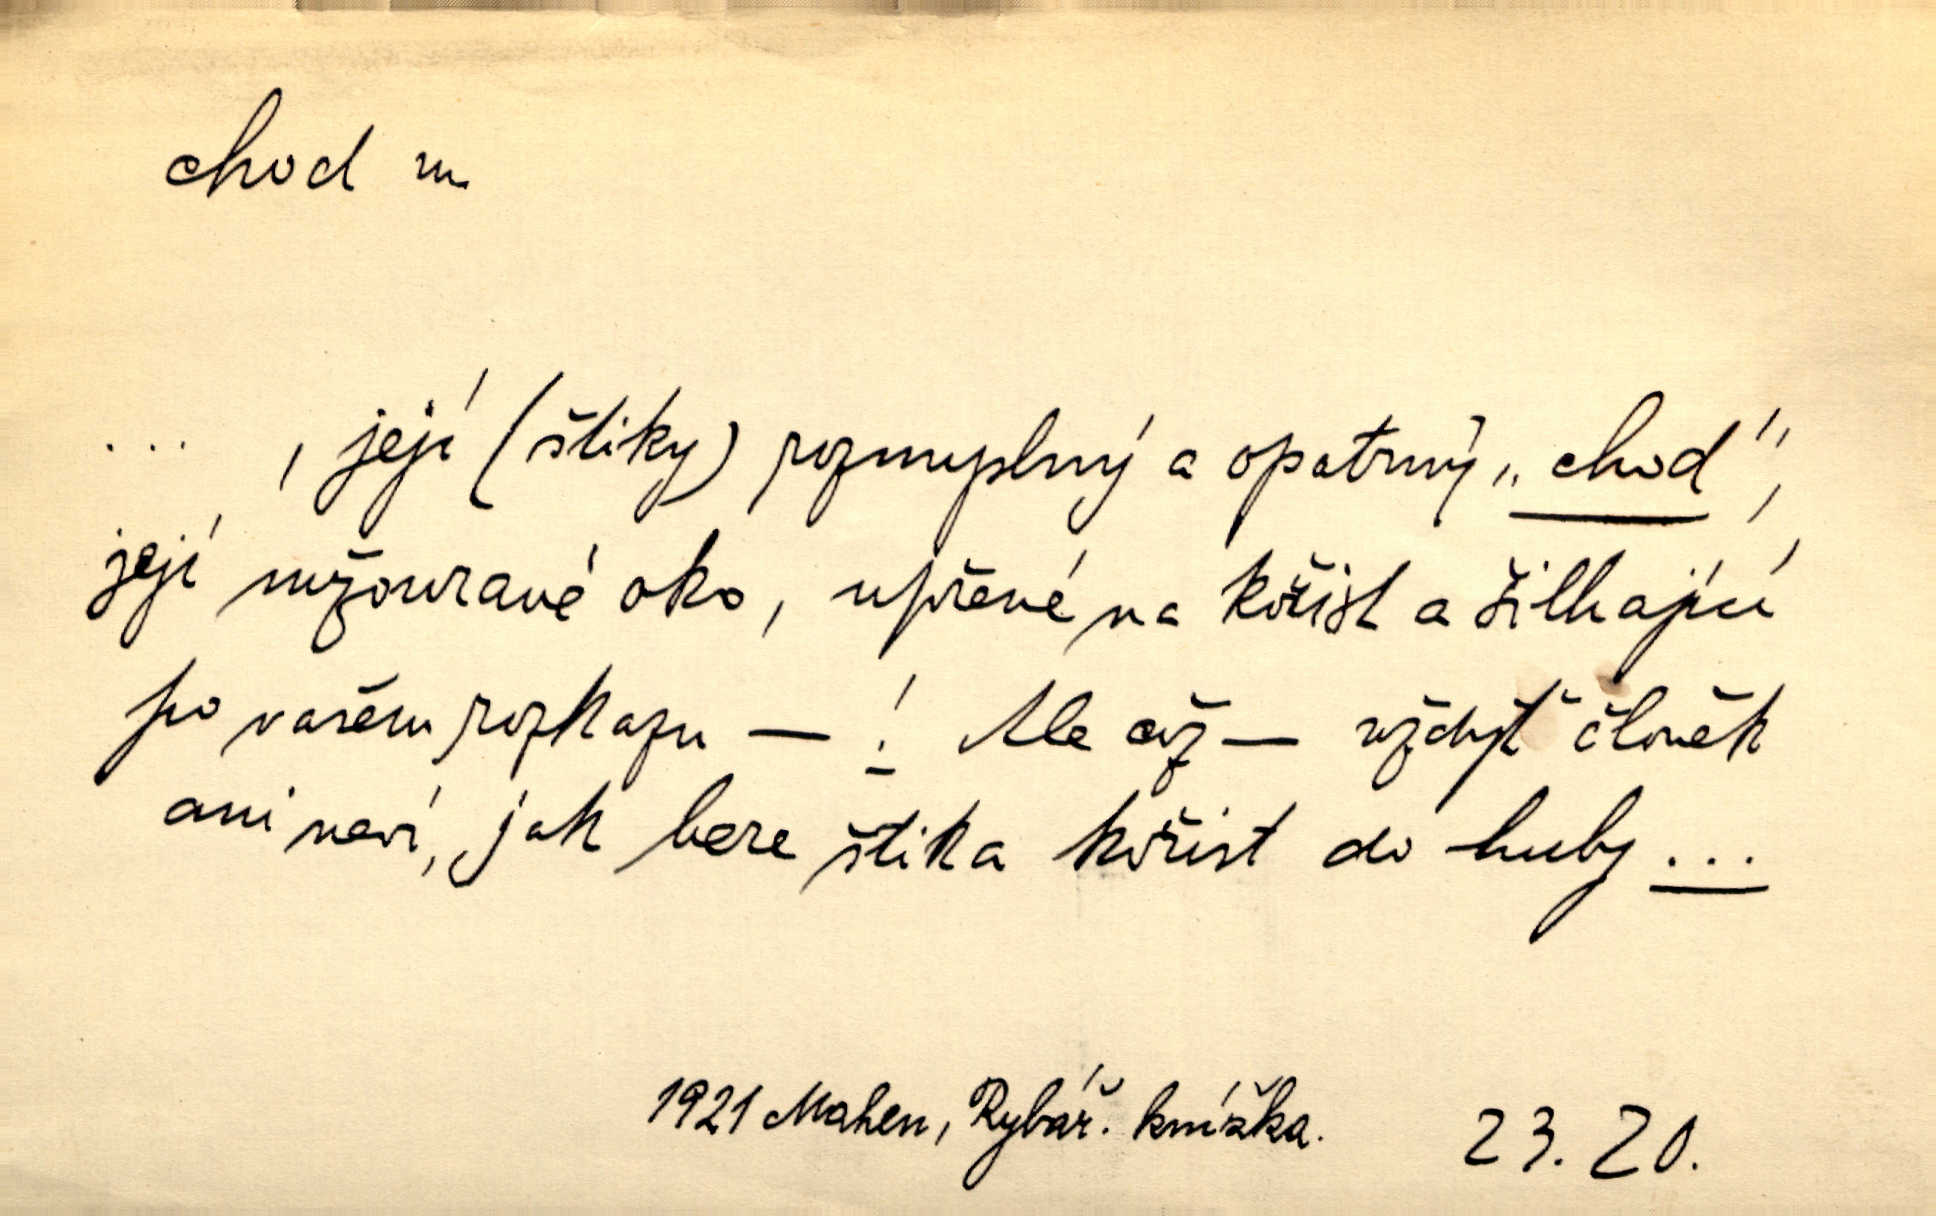 chod m.
... , její (štiky) rozmyslný a opatrný „chod“,
její mžouravé oko, upřené na kořist a šilhající
po vašem rozkazu — ! Ale což — vždyť člověk
ani neví, jak bere štika kořist do huby ...
1921 Mahen, Rybář. knížka. 23. 20.